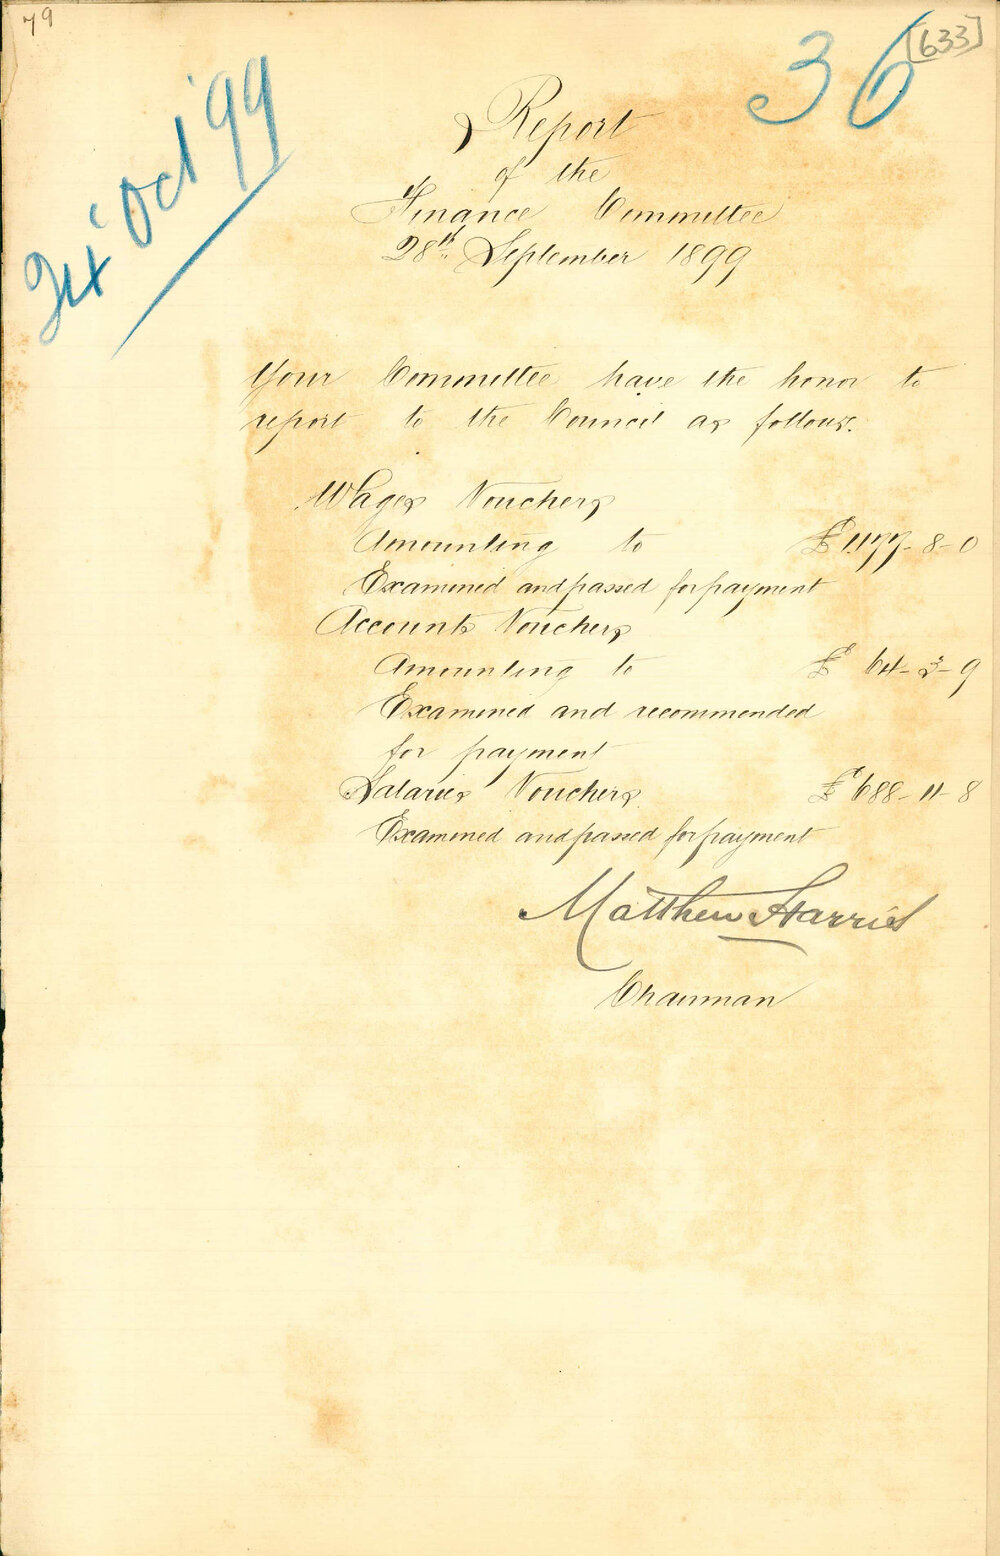 79
[633]
36
Oct '99
Report
of the
Finance Committee
28th September 1899
Your Committee have the honor to
report to the Council as follows.
Wages Vouchers
Amounting to £1177-8-0
Examined and passed for payment
Accounts Vouchers
Amounting to £ 64-3-9
Examined and recommended
for payment
Salaries Vouchers £688-11-8
Examined and passed for payment
Matthew Harris
Chairman